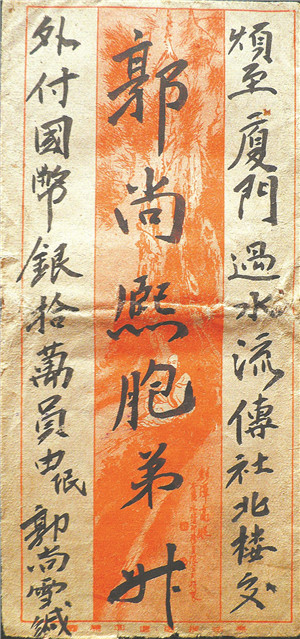 煩至廈門過水流傳社北楼交
郭尚熙胞弟升
外付國幣銀拾萬員 由岷 郭尚雪緘